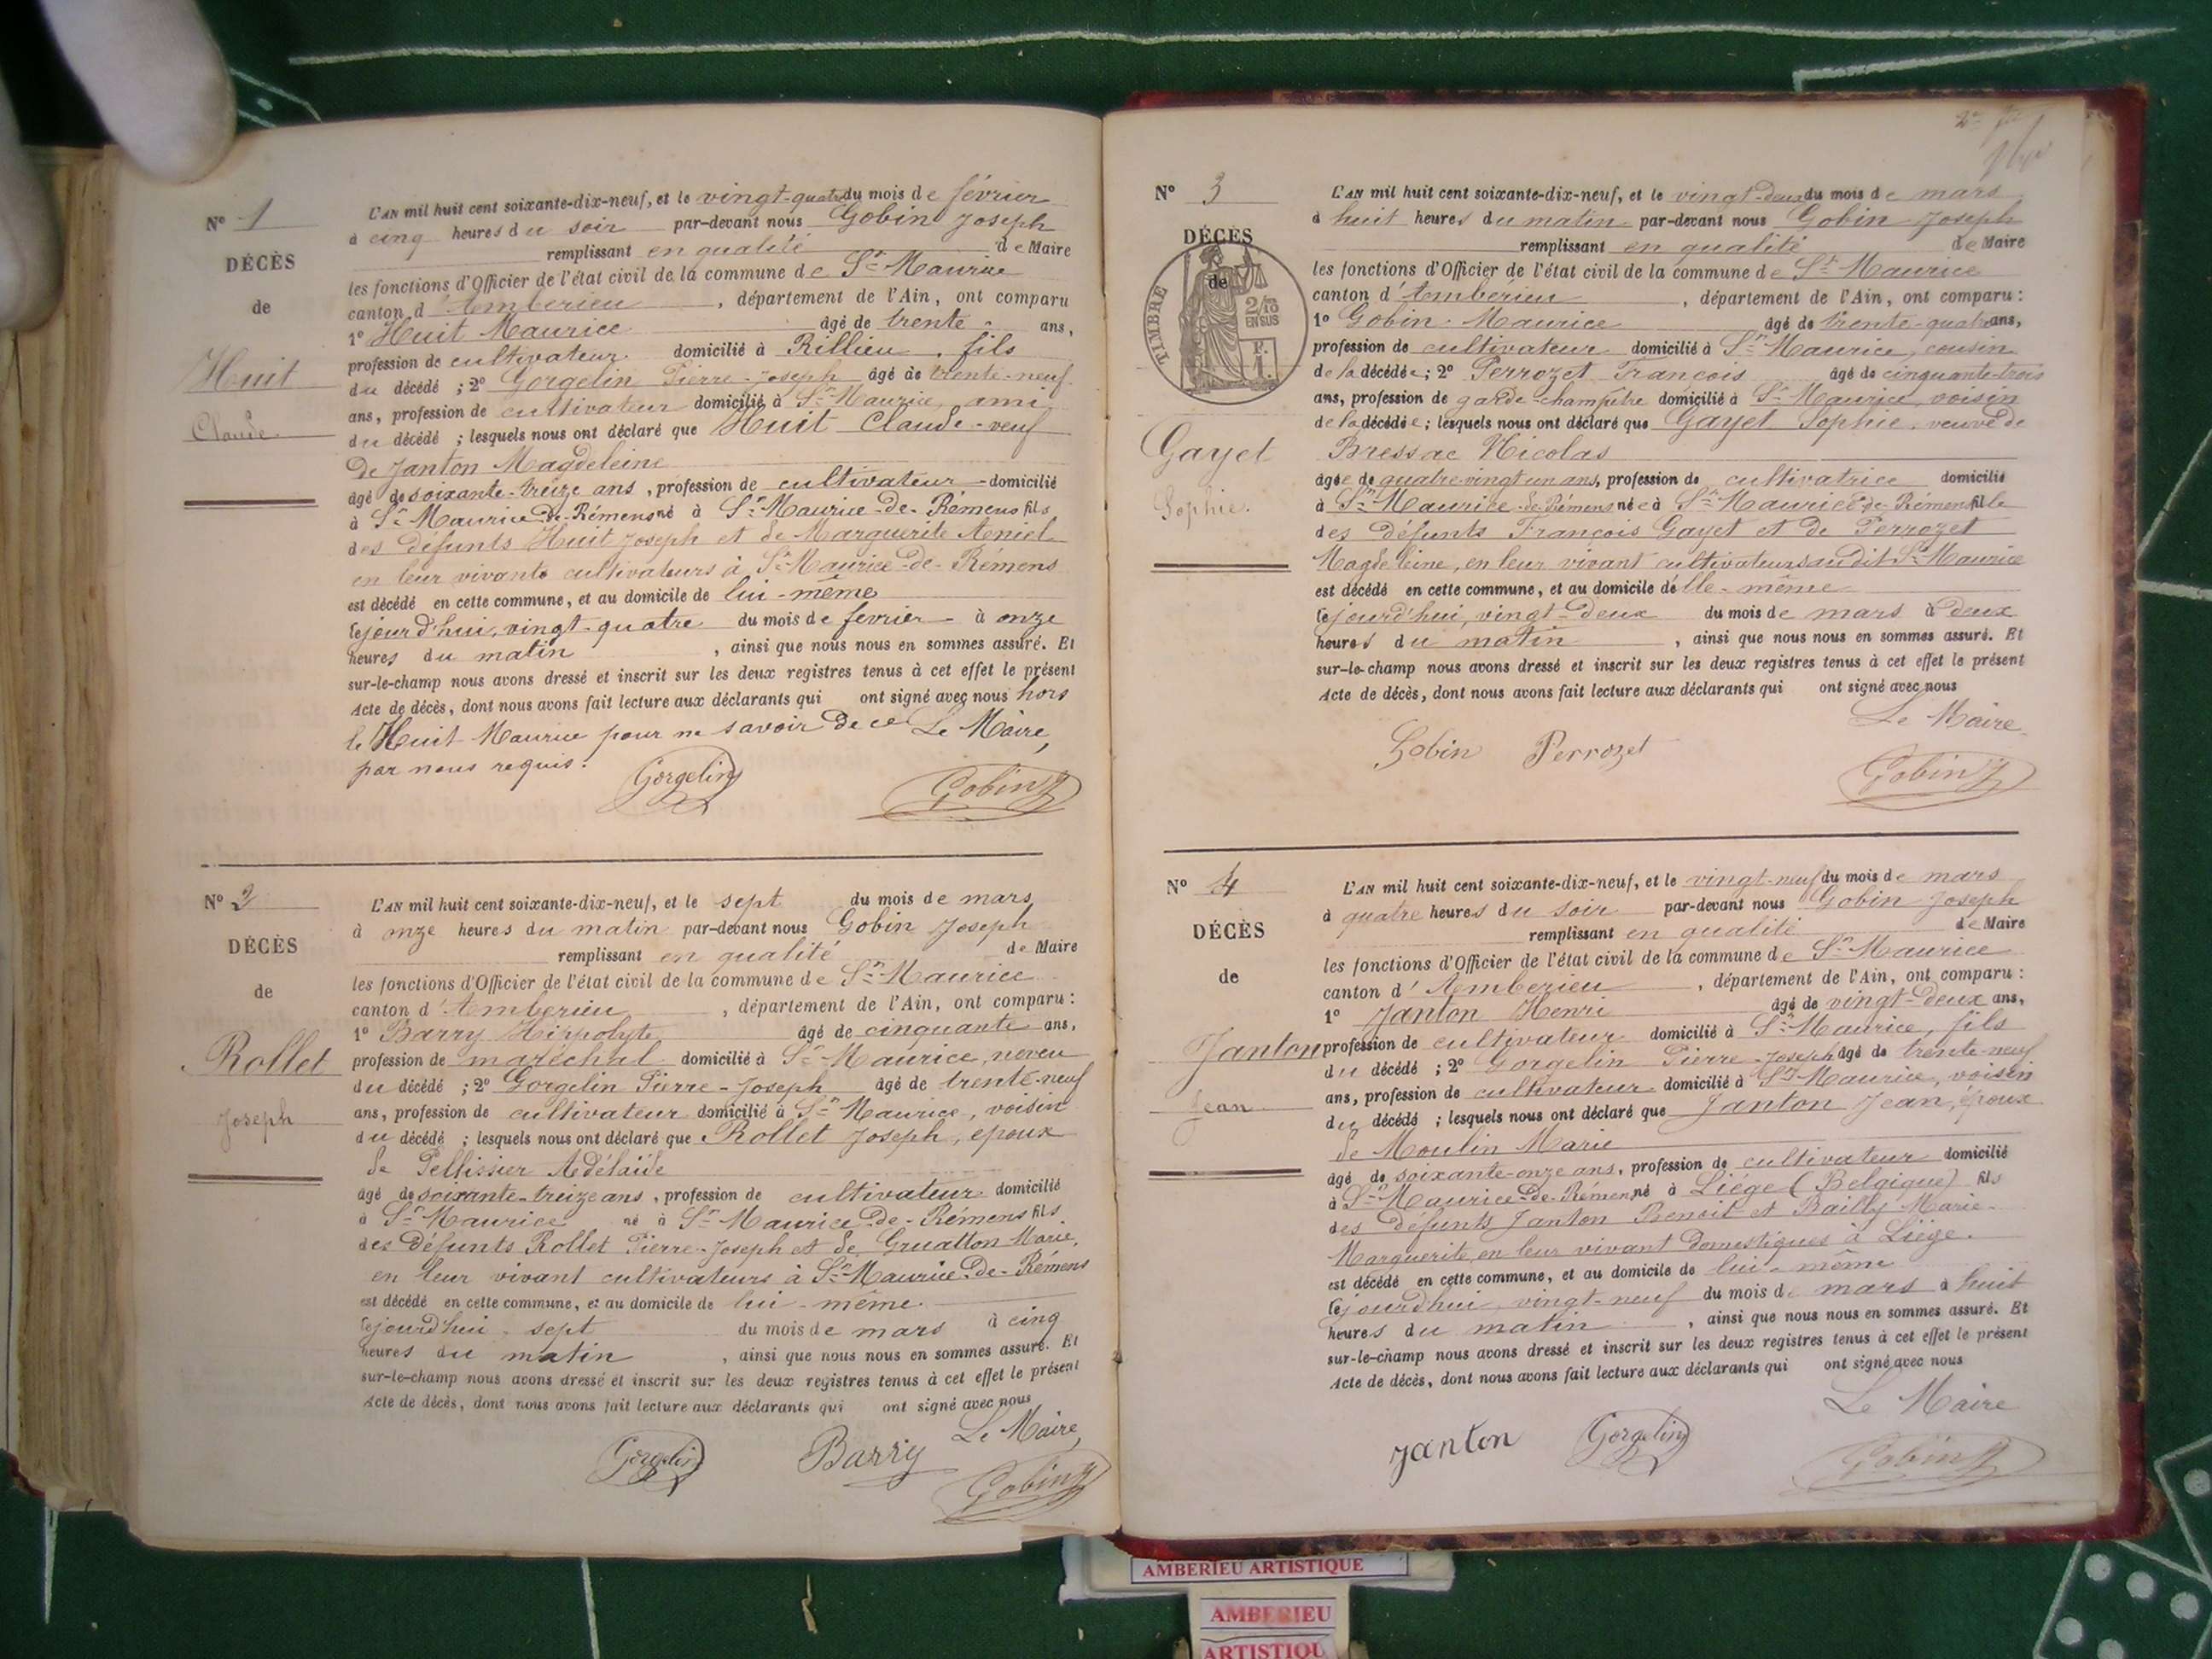 N° 1
DÉCÈS
de
Huit
Claude
L'AN mil huit cent soixante-dix-neuf, et le vingt-quatre du mois de février
à cinq heures du soir par-devant nous Gobin Joseph
remplissant en qualité de Maire
les fonctions d'Officier de l'état civil de la commune de St Maurice
canton d'Amberieu, département de l'Ain, ont comparu
1° Huit Maurice âgé de trente ans,
profession de cultivateur domicilié à Rillieu, fils
du décédé ; 2° Gorgelin Pierre-Joseph âgé de trente-neuf
ans, profession de cultivateur domicilié à St Maurice, ami
du décédé ; lesquels nous ont déclaré que Huit Claude - veuf
de Janton Magdeleine
âgé de soixante-treize ans, profession de cultivateur - domicilié
à St Maurice-de-Rémens né à St Maurice-de-Rémens fils
des défunts Huit Joseph et de Marguerite
en leur vivants cultivateurs à St Maurice-de-Rémens
est décédé en cette commune, et au domicile de lui-même
cejourd'hui, vingt-quatre du mois de fevrier - à onze
heures du matin, ainsi que nous nous en sommes assuré. Et
sur-le-champ nous avons dressé et inscrit sur les deux registres tenus à cet effet le présent
Acte de décès, dont nous avons fait lecture aux déclarants qui ont signé avec nous hors
le Huit Maurice pour ne savoir de ce Le Maire,
par nous requis.
Gorgelin Gobin J
N° 2
DÉCÈS
de
Rollet
Joseph
L'AN mil huit cent soixante-dix-neuf, et le sept du mois de mars
à onze heures du matin par-devant nous Gobin Joseph
remplissant en qualité de Maire
les fonctions d'Officier de l'état civil de la commune de St Maurice
canton d'Amberieu, département de l'Ain, ont comparu :
1° Barry Hippolyte âgé de cinquante ans,
profession de maréchal domicilié à St Maurice, neveu
du décédé ; 2° Gorgelin Pierre-Joseph âgé de trente-neuf
ans, profession de cultivateur domicilié à St Maurice, voisin
du décédé ; lesquels nous ont déclaré que Rollet Joseph, epoux
de Pellissier Adélaïde
âgé de soixante-treize ans, profession de cultivateur domicilié
à St Maurice né à St Maurice-de-Rémens fils
des défunts Rollet Pierre-Joseph et de Gruatton Marie,
en leur vivant cultivateurs à St Maurice-de-Rémens
est décédé en cette commune, et au domicile de lui-même.
cejourd'hui, sept du mois de mars à cinq
heures du matin, ainsi que nous nous en sommes assuré. Et
sur-le-champ nous avons dressé et inscrit sur les deux registres tenus à cet effet le présent
Acte de décès, dont nous avons fait lecture aux déclarants qui ont signé avec nous
Le Maire,
Gorgelin Barry Gobin J
N° 3
DÉCÈS
de
TIMBRE
2/10
EN SUS
Gayet
Sophie.
L'AN mil huit cent soixante-dix-neuf, et le vingt-deux du mois de mars
à huit heures du matin par-devant nous Gobin Joseph
remplissant en qualité de Maire
les fonctions d'Officier de l'état civil de la commune de St Maurice
canton d'Ambérieu, département de l'Ain, ont comparu :
1° Gobin Maurice âgé de trente-quatre ans,
profession de cultivateur domicilié à St Maurice, cousin
de la décédée ; 2° Perrozet François âgé de cinquante-trois
ans, profession de garde-champêtre domicilié à St Maurice, voisin
de la décédée ; lesquels nous ont déclaré que Gayet Sophie, veuve de
Bressac Nicolas
âgée de quatre-vingt un ans, profession de cultivatrice domicilié
à St Maurice-de-Rémens née à St Maurice-de-Rémens fille
des défunts François Gayet et de Perrozet
Magdeleine, en leur vivant cultivateurs audit St Maurice
est décédé en cette commune, et au domicile d'elle-même
cejourd'hui, vingt-deux du mois de mars à deux
heures du matin, ainsi que nous nous en sommes assuré. Et
sur-le-champ nous avons dressé et inscrit sur les deux registres tenus à cet effet le présent
Acte de décès, dont nous avons fait lecture aux déclarants qui ont signé avec nous
Le Maire
Gobin Perrozet Gobin J
N° 4
DÉCÈS
de
Janton
Jean
L'AN mil huit cent soixante-dix-neuf, et le vingt-neuf du mois de mars
à quatre heures du soir par-devant nous Gobin Joseph
remplissant en qualité de Maire
les fonctions d'Officier de l'état civil de la commune de St Maurice
canton d'Amberieu, département de l'Ain, ont comparu :
1° Janton Henri âgé de vingt-deux ans,
profession de cultivateur domicilié à St Maurice, fils
du décédé ; 2° Gorgelin Pierre-Joseph âgé de trente-neuf
ans, profession de cultivateur domicilié à St Maurice, voisin
du décédé ; lesquels nous ont déclaré que Janton Jean, époux
de Moulin Marie
âgé de soixante-onze ans, profession de cultivateur domicilié
à St Maurice-de-Rémens né à Liége (Belgique) fils
des défunts Janton Benoit et Bailly Marie-
Marguerite, en leur vivant domestiques à Liège.
est décédé en cette commune, et au domicile de lui-même
cejourd'hui, vingt-neuf du mois de mars à huit
heures du matin, ainsi que nous nous en sommes assuré. Et
sur-le-champ nous avons dressé et inscrit sur les deux registres tenus à cet effet le présent
Acte de décès, dont nous avons fait lecture aux déclarants qui ont signé avec nous
Le Maire
Janton Gorgelin Gobin J
AMBERIEU ARTISTIQUE
AMBERIEU
ARTISTIQU